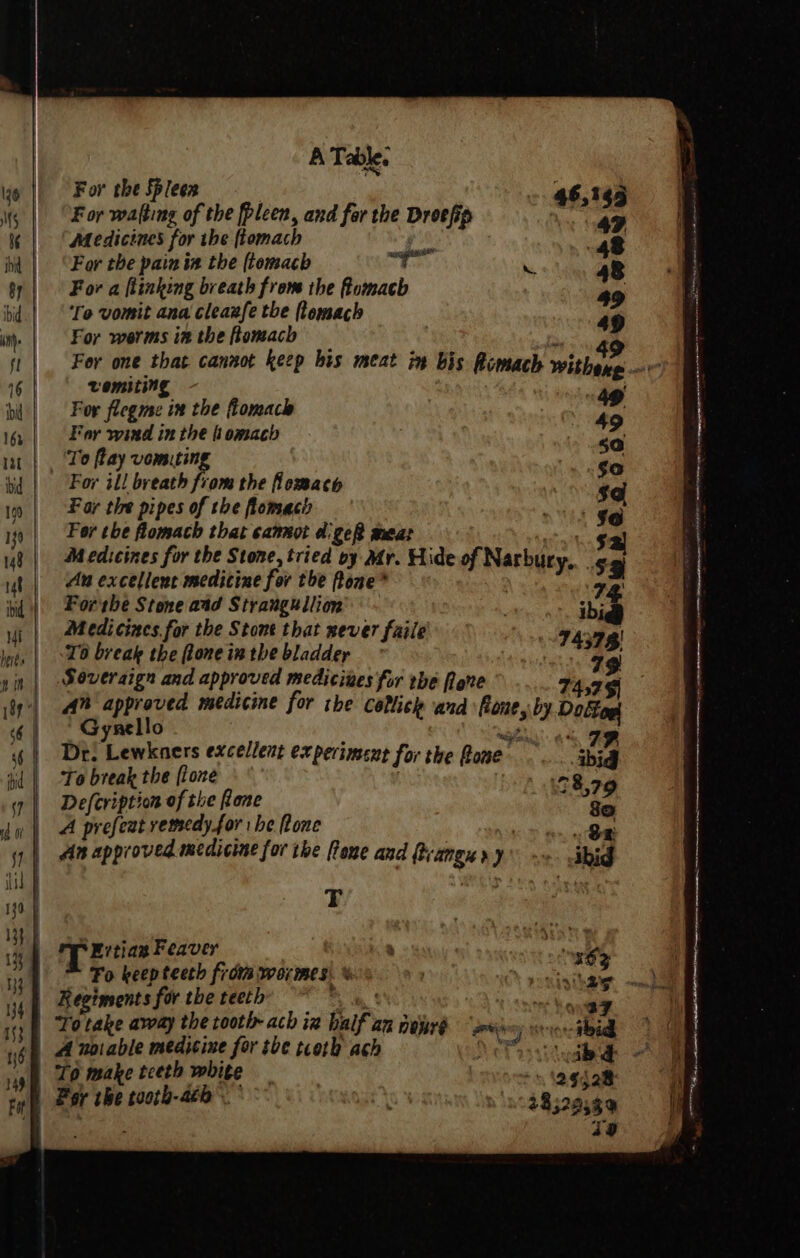 A Table.
For the Spleen 46,143
For wasting of the spleen, and for the Dropsip 47
Medicines for the stomach 48
For the pain in the stomach 48
For a stinking breath from the stomach 49
To vomit and cleanse the stomach 49
For worms in the stomach 49
For one that cannot keep his meat in his stomach without
vomiting 49
For flegme in the stomach 49
For wind in the stomach 50
To stay vomiting 50
For ill breath from the stomach 50
For the pipes of the stomach 50
For the stomach that cannot digest meat
Medicines for the Stone, tried by Mr. Hide of Narbury.
An excellent medicine for the stone 74
For the Stone and Strangullion ibid
Medicines for the Stone that never faile 74,78
To break the stone in the bladder 79
Soveraign and approved medicines for the stone
An approved medicine for the Collick and stone, by Doctor
Gynello
Dr. Lewkners excellent experiment for the stone ibid
To break the stone 78,79
Description of the stone 80
A present remedy for the stone
An approved medicine for the stone and strangury ibid
T
TErtian Feaver
To keep teeth from wormes
Regiments for the teeth 27
To take away the tooth-ach in half an houre ibid
A notable medicine for the tooth ach ibid
To make teeth white 25,28
For the tooth-ach
To
149
130
148